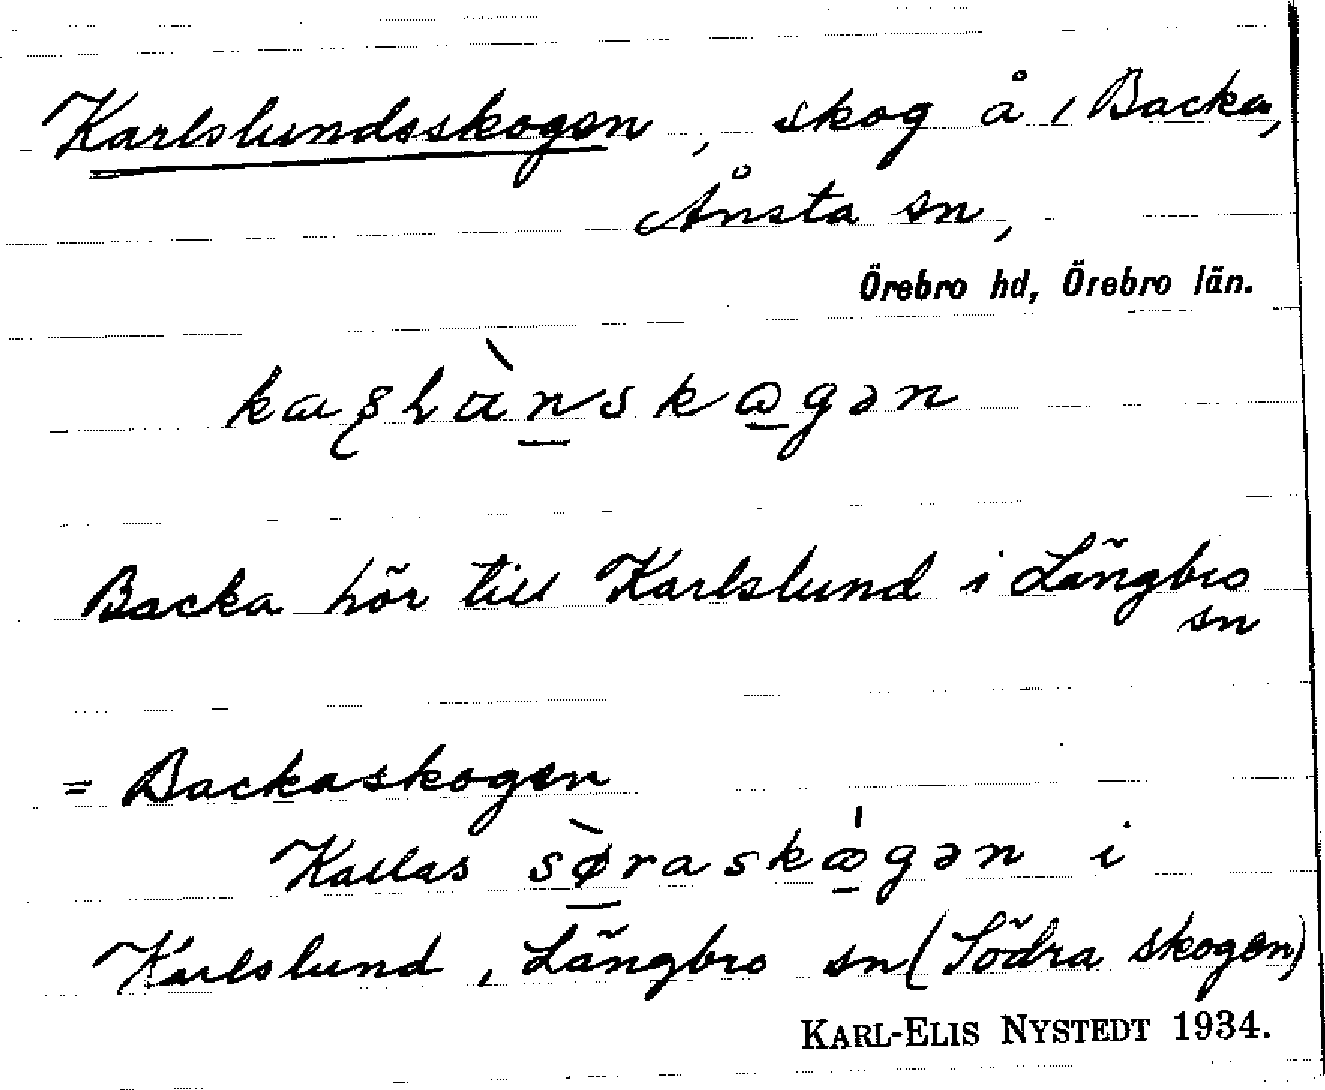 Karlslundsskogen, skog å i Backa,
Ånsta sn,
Örebro hd, Örebro län.
Backa hör till Karlslund i Längbro
sn
= Backaskogen
Kallas sø̀raskǿgən i
Karlslund, Längbro sn (Södra skogen)
KARL-ELIS NYSTEDT 1934.